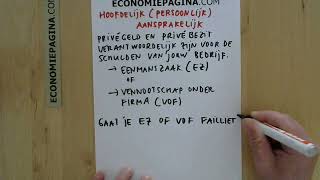 ECONOMIEPAGINA.COM
HOOFDELIJK (PERSOONLIJK)
AANSPRAKELIJK
PRIVÉGELD EN PRIVÉ BEZIT
VERANTWOORDELIJK ZIJN VOOR DE
SCHULDEN VAN JOUW BEDRIJF.
→ EENMANSZAAK (EZ)
OF
→ VENNOOTSCHAP ONDER
FIRMA (VOF)
GAAT JE EZ OF VOF FAILLIET